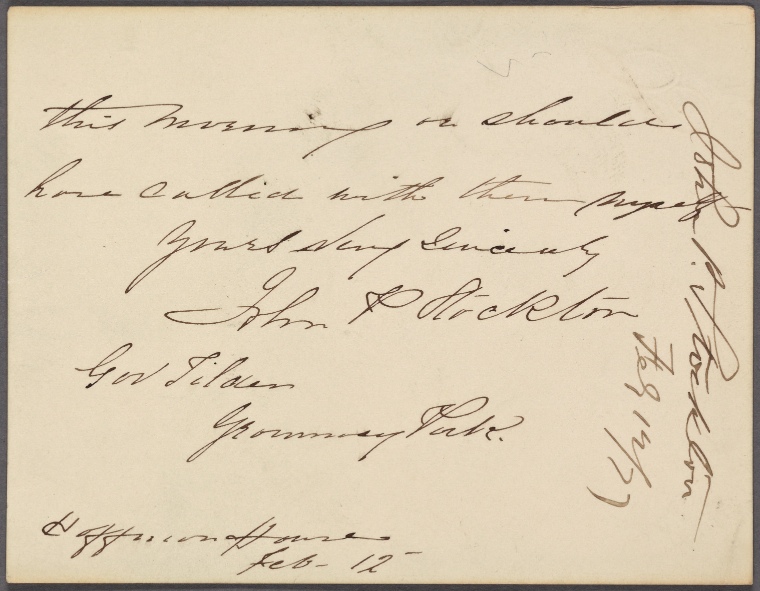 this morning or should
have called with them myself
Yours Very Sincerely
John P Stockton
Gov Tilden
Grammercy Park.
Hoffman House
Feb- 12
John P. Stockton
Feb 12/77